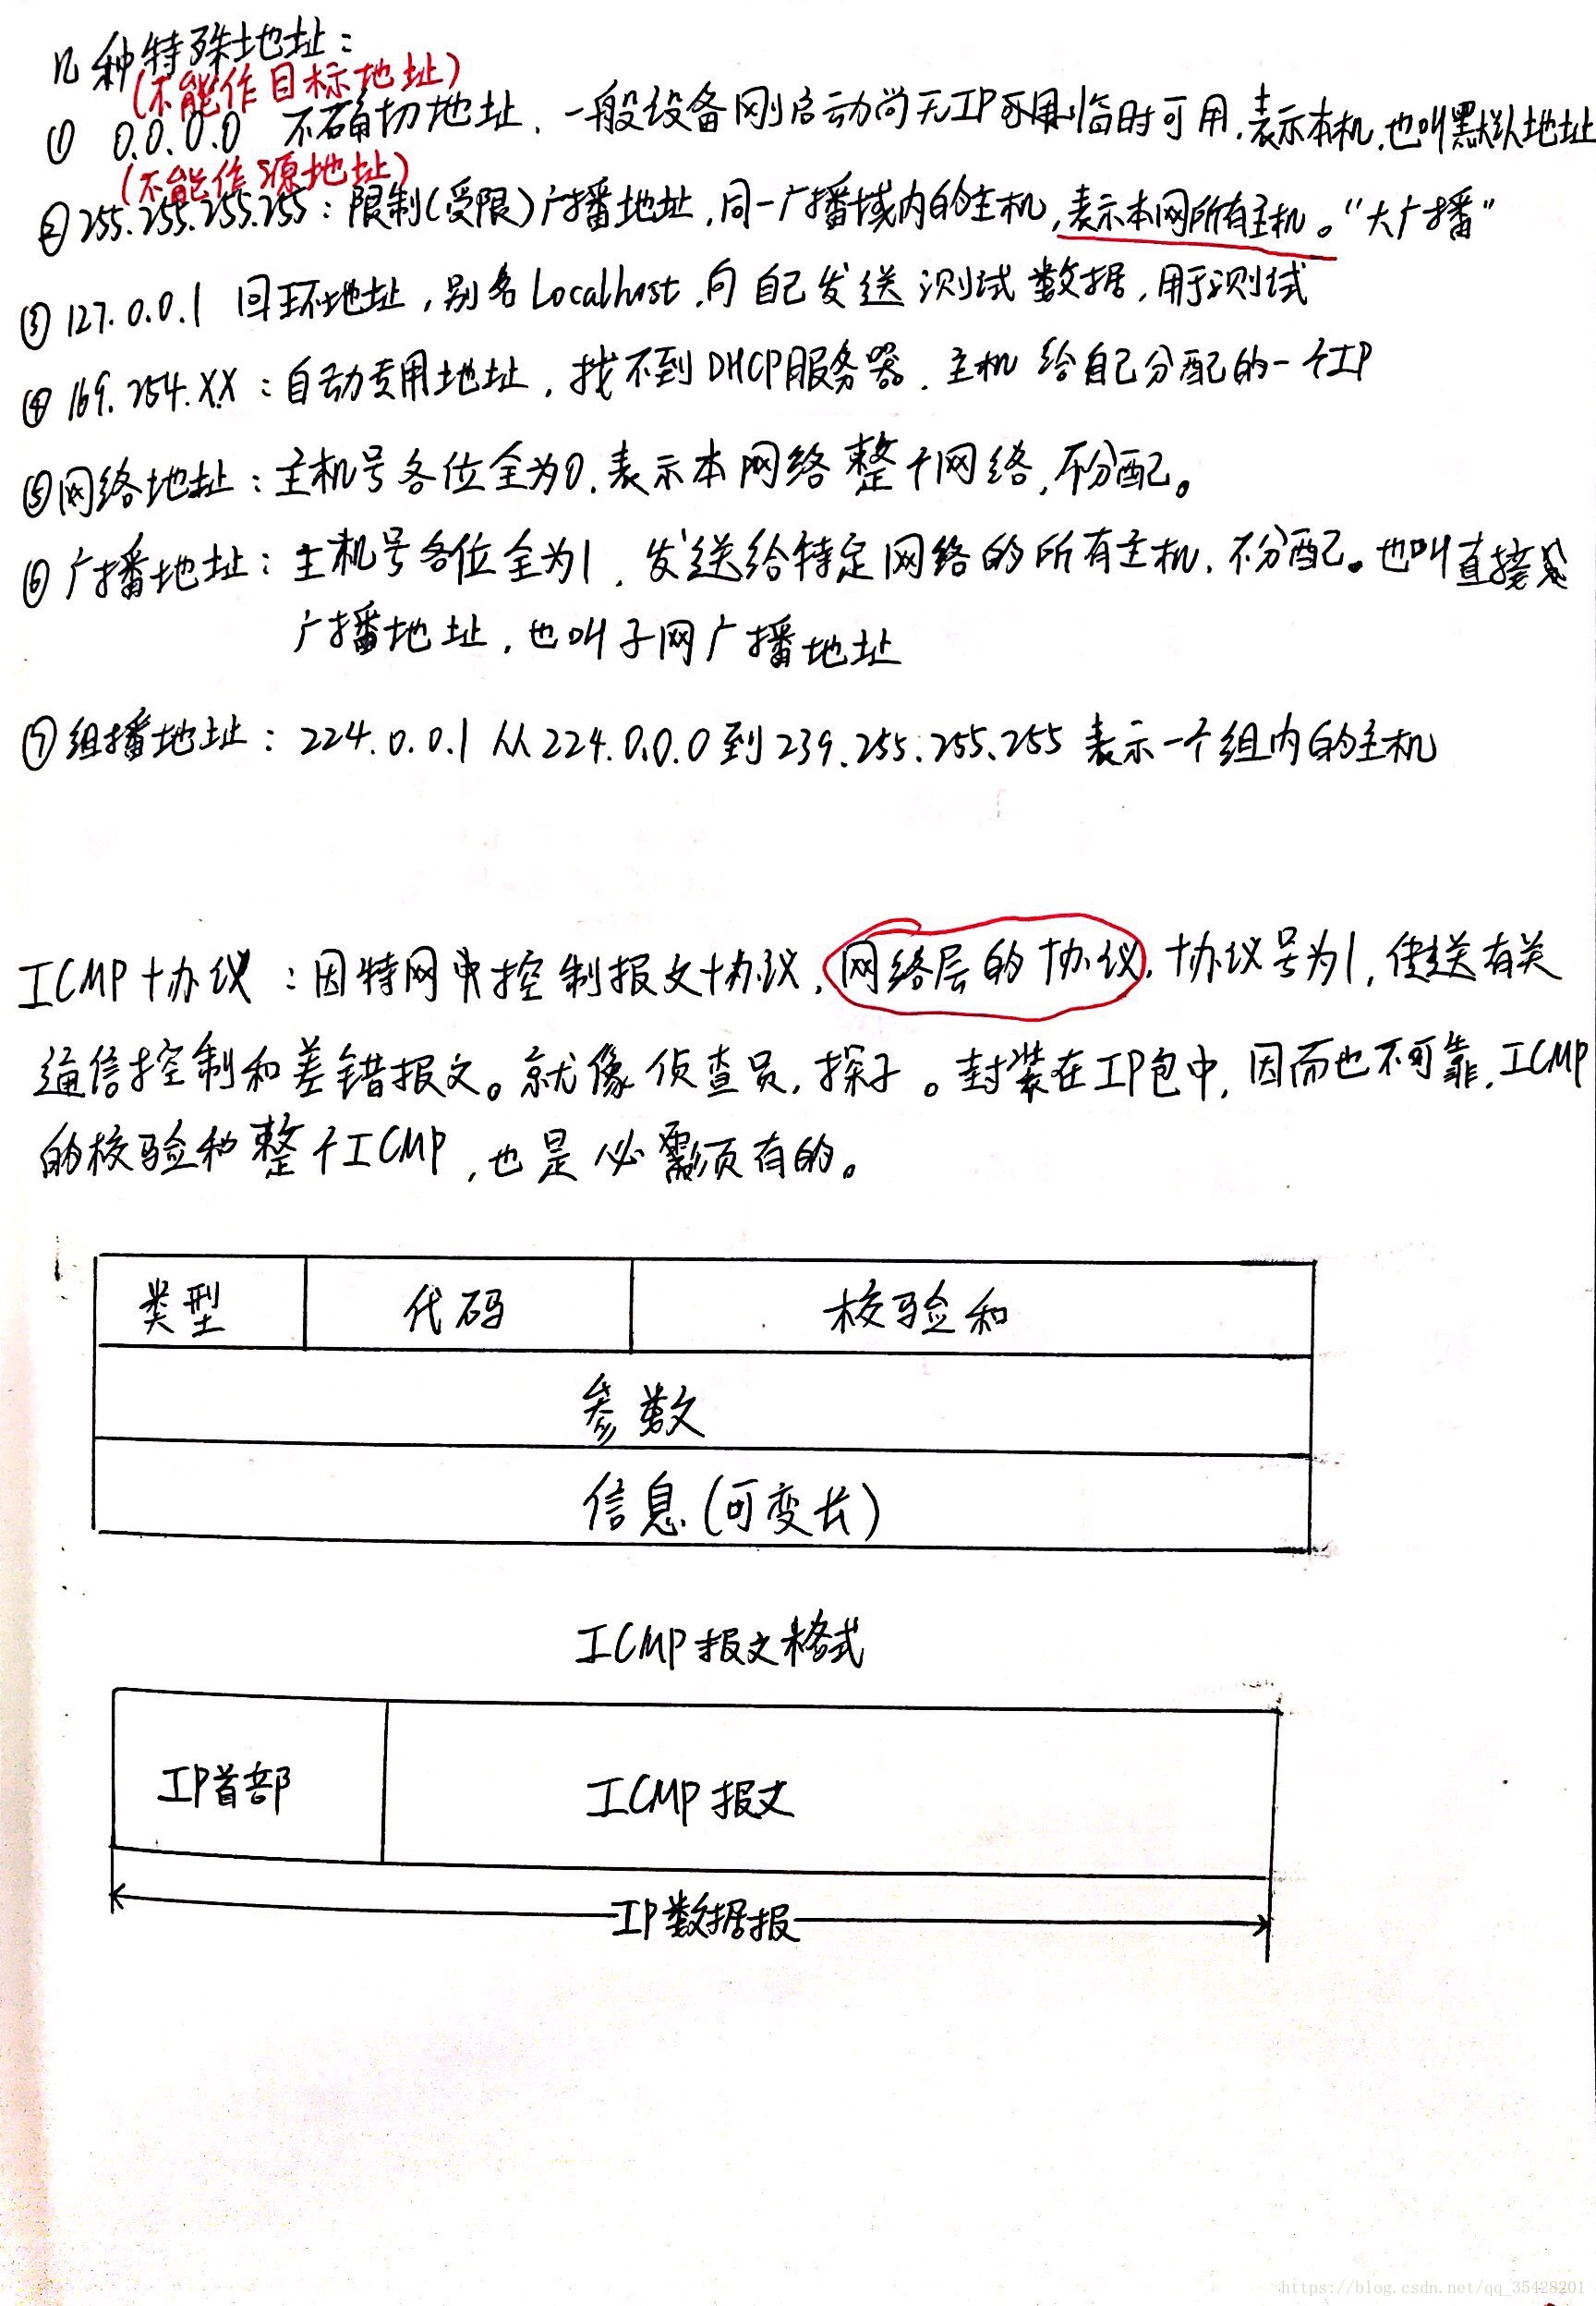 几种特殊地址：
(不能作目标地址)
① 0.0.0.0 不确切地址，一般设备刚启动尚无IP 临时可用，表示本机，也叫默认地址
(不能作源地址)
② 255.255.255.255：限制(受限)广播地址，同一广播域内的主机，表示本网所有主机。“大广播”
③ 127.0.0.1 回环地址，别名Localhost，向自己发送测试数据，用于测试
④ 169.254.X.X：自动专用地址，找不到DHCP服务器，主机给自己分配的一个IP
⑤ 网络地址：主机号各位全为0，表示本网络整个网络，不分配。
⑥ 广播地址：主机号各位全为1，发送给特定网络的所有主机，不分配。也叫直接
广播地址，也叫子网广播地址
⑦ 组播地址：224.0.0.1 从224.0.0.0到239.255.255.255 表示一个组内的主机
ICMP协议：因特网中控制报文协议，网络层的协议，协议号为1，传送有关
通信控制和差错报文。就像侦查员，探子。封装在IP包中，因而也不可靠，ICMP
的校验和整个ICMP，也是必须有的。
类型 代码 校验和
参数
信息(可变长)
ICMP报文格式
IP首部 ICMP报文
IP数据报
https://blog.csdn.net/qq_35428201